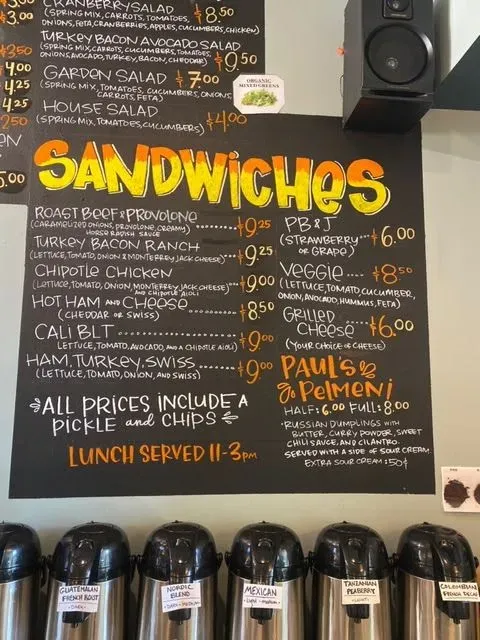 3.00
3.50
4.00
4.25
4.25
2.50
5.00
CRANBERRY SALAD $8.50
(SPRING MIX, CARROTS, TOMATOES,
ONIONS, FETA, CRANBERRIES, APPLES, CUCUMBERS, CHICKEN)
TURKEY BACON AVOCADO SALAD
(SPRING MIX, CARROTS, TOMATOES, CUCUMBERS, $9.50
ONIONS, AVOCADO, TURKEY, BACON, CHEDDAR)
GARDEN SALAD $7.00
(SPRING MIX, TOMATOES, CUCUMBERS, ONIONS,
CARROTS, FETA)
HOUSE SALAD
(SPRING MIX, TOMATOES, CUCUMBERS) $4.00
ORGANIC
MIXED GREENS
SANDWICHES
ROAST BEEF & PROVOLONE $9.25
(CARAMELIZED ONIONS, PROVOLONE, CREAMY
HORSE RADISH SAUCE
TURKEY BACON RANCH $9.25
(LETTUCE, TOMATO, ONION & MONTERREY JACK CHEESE)
CHIPOTLE CHICKEN $9.00
(LETTUCE, TOMATO, ONION, MONTERREY JACK CHEESE
AND CHIPOTLE AIOLI)
HOT HAM AND CHEESE $8.50
(CHEDDAR OR SWISS)
CALI BLT $9.00
LETTUCE, TOMATO, AVOCADO, AND A CHIPOTLE AIOLI)
HAM, TURKEY, SWISS $9.00
(LETTUCE, TOMATO, ONION, AND SWISS)
ALL PRICES INCLUDE A
PICKLE and CHIPS
LUNCH SERVED 11-3pm
PB & J
(STRAWBERRY $6.00
OR GRAPE)
VEGGIE $8.50
(LETTUCE, TOMATO, CUCUMBER,
ONION, AVOCADO, HUMMUS, FETA)
GRILLED
CHEESE $6.00
(YOUR CHOICE OF CHEESE)
PAUL'S
PELMENI
HALF: 6.00 FULL: 8.00
*RUSSIAN DUMPLINGS WITH
BUTTER, CURRY POWDER, SWEET
CHILI SAUCE, AND CILANTRO.
SERVED WITH A SIDE OF SOUR CREAM.
EXTRA SOUR CREAM: 50¢
GUATEMALAN
FRENCH ROAST
- DARK -
NORDIC
BLEND
- DARK - MEDIUM -
MEXICAN
- LIGHT - MEDIUM -
TANZANIAN
PEABERRY
- LIGHT -
COLOMBIAN
FRENCH DECAF